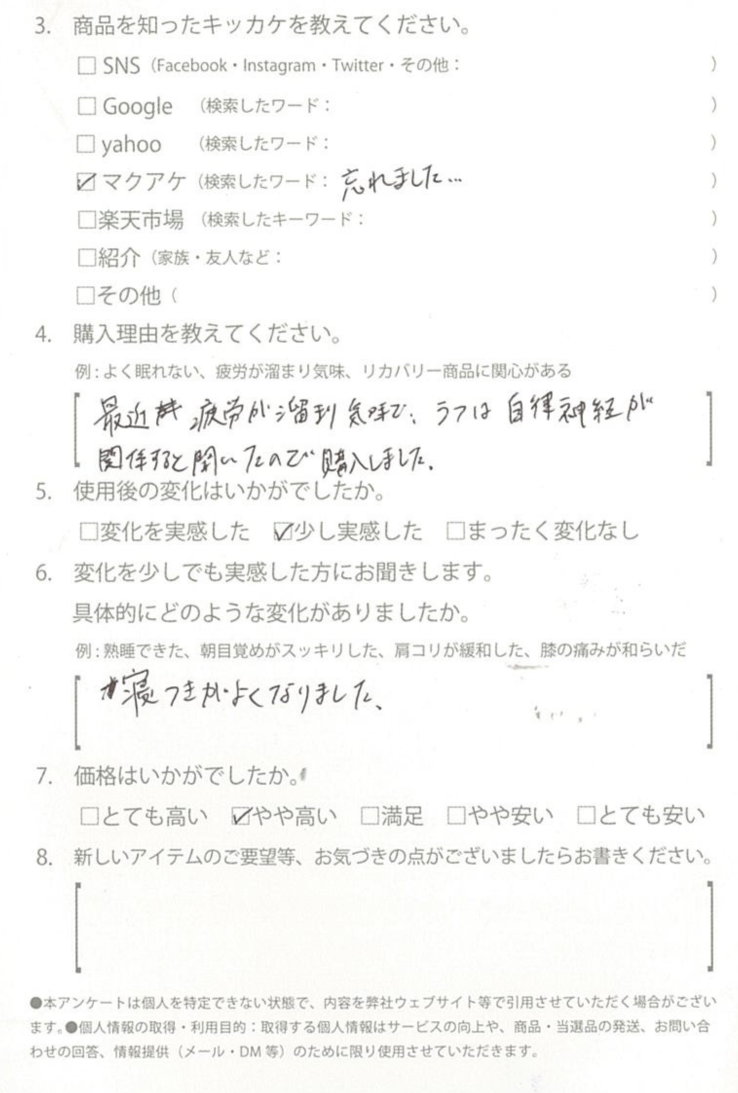 3. 商品を知ったキッカケを教えてください。
□ SNS（Facebook・Instagram・Twitter・その他： ）
□ Google （検索したワード： ）
□ yahoo （検索したワード： ）
☑ マクアケ（検索したワード：忘れました… ）
□楽天市場 （検索したキーワード： ）
□紹介（家族・友人など： ）
□その他（ ）
4. 購入理由を教えてください。
例：よく眠れない、疲労が溜まり気味、リカバリー商品に関心がある
最近 疲労が溜まり気味で、ラフは自律神経が
関係すると聞いたので購入しました。
5. 使用後の変化はいかがでしたか。
□変化を実感した ☑少し実感した □まったく変化なし
6. 変化を少しでも実感した方にお聞きします。
具体的にどのような変化がありましたか。
例：熟睡できた、朝目覚めがスッキリした、肩コリが緩和した、膝の痛みが和らいだ
寝つきがよくなりました、
7. 価格はいかがでしたか。
□とても高い ☑やや高い □満足 □やや安い □とても安い
8. 新しいアイテムのご要望等、お気づきの点がございましたらお書きください。
●本アンケートは個人を特定できない状態で、内容を弊社ウェブサイト等で引用させていただく場合がござい
ます。●個人情報の取得・利用目的：取得する個人情報はサービスの向上や、商品・当選品の発送、お問い合
わせの回答、情報提供（メール・DM 等）のために限り使用させていただきます。